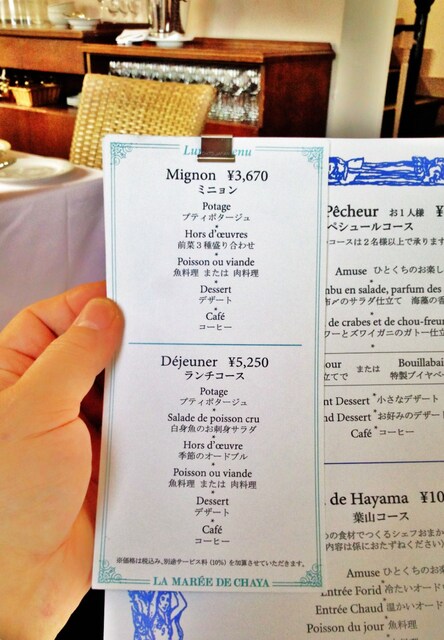 Lu menu
Mignon ¥3,670
ミニョン
Potage
プティポタージュ
Hors d'œuvres
前菜３種盛り合わせ
Poisson ou viande
魚料理 または 肉料理
Dessert
デザート
Café
コーヒー
Déjeuner ¥5,250
ランチコース
Potage
プティポタージュ
Salade de poisson cru
白身魚のお刺身サラダ
Hors d'œuvre
季節のオードブル
Poisson ou viande
魚料理 または 肉料理
Dessert
デザート
Café
コーヒー
※価格は税込み、別途サービス料 (10%) を加算させていただきます。
LA MARÉE DE CHAYA
Pêcheur お１人様 ¥
ペシュールコース
コースは２名様以上で承ります
Amuse ひとくちのお楽し
mbu en salade, parfum des
布〆のサラダ仕立て 海藻の香
de crabes et de chou-fleur
ワーとズワイガニのガトー仕立
our または Bouillabai
立てで 特製ブイヤベ
nt Dessert 小さなデザート
nd Dessert お好みのデザート
Café コーヒー
de Hayama ¥10
葉山コース
の食材でつくるシェフおまか
内容は係におたずねください)
Amuse ひとくちのお楽
Entrée Forid 冷たいオード
Entrée Chaud 温かいオード
Poisson du jour 魚料理